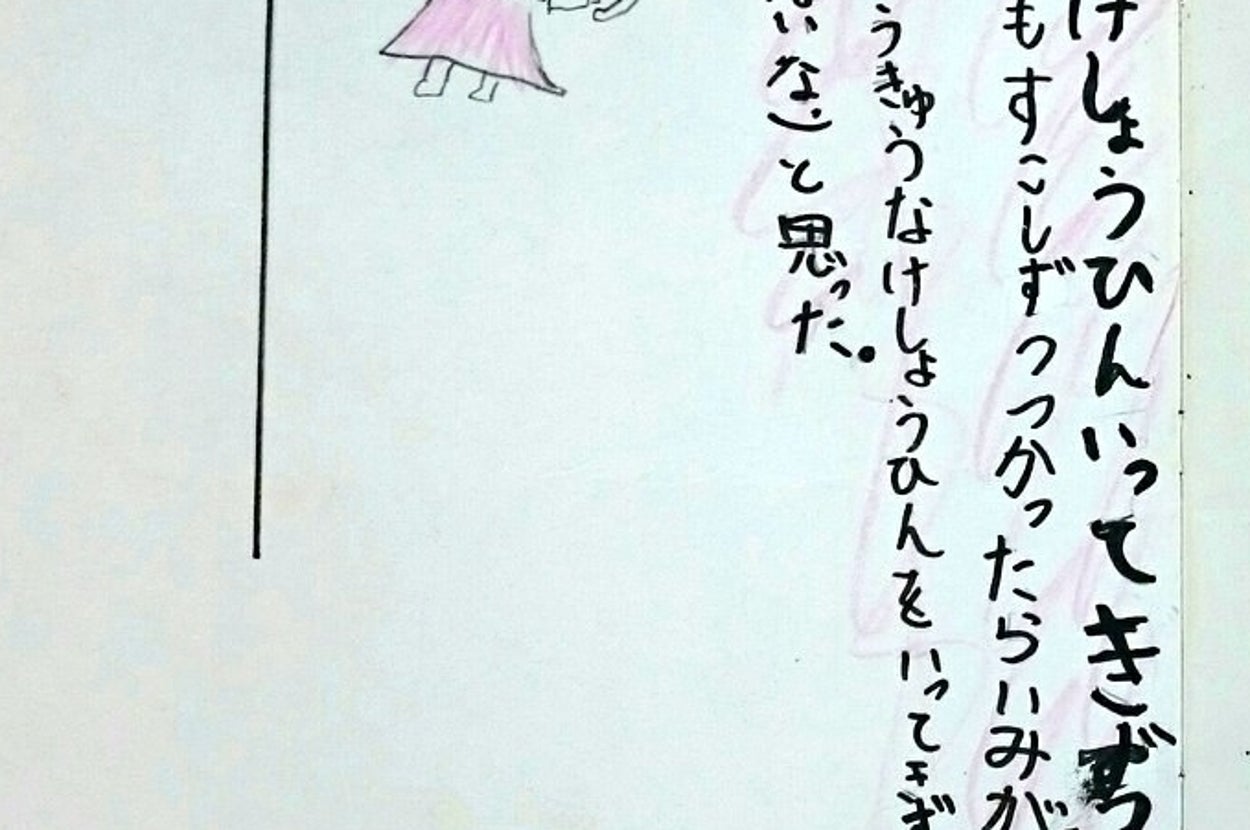 けしょうひんいってきずつ
もすこしずつつかったらいみが
うきゅうなけしょうひんをいってきず
いな」と思った。